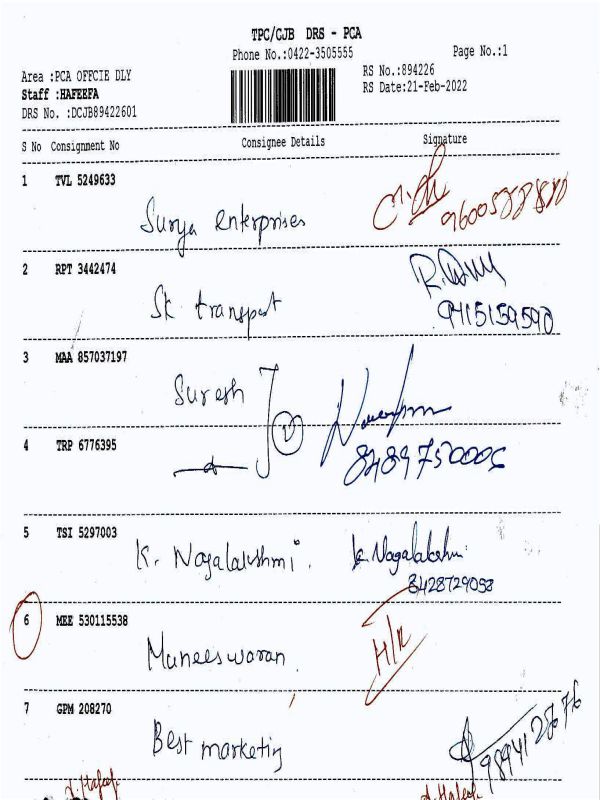 TPC/CJB DRS - PCA
Phone No.:0422-3505555 Page No.:1
Area :PCA OFFCIE DLY RS No.:894226
Staff :HAFEEFA RS Date:21-Feb-2022
DRS No. :DCJB89422601
S No Consignment No Consignee Details Signature
1 TVL 5249633
Surya enterprises
2 RPT 3442474
SK transport
9415159590
3 MAA 857037197
Suresh
4 TRP 6776395
5 TSI 5297003
K. Nagalakshmi. K. Nagalakshmi
6 MEE 530115538
Muneeswaran. H/R
7 GPM 208270
Best marketing